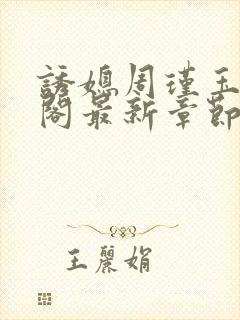 誘媳周瑾玉
閣最新章節
王麗娟